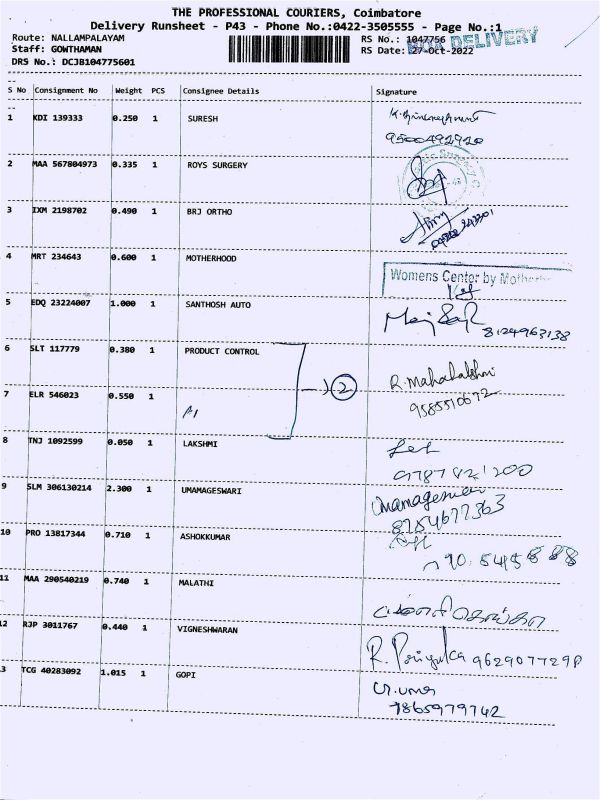 THE PROFESSIONAL COURIERS, Coimbatore
Delivery Runsheet - P43 - Phone No.:0422-3505555 - Page No.:1
Route: NALLAMPALAYAM
RS No.: 1047756
BOX DELIVERY
Staff: GOWTHAMAN
RS Date: 27-Oct-2022
DRS No.: DCJB104775601
S No Consignment No Weight PCS Consignee Details Signature
1 KDI 139333 0.250 1 SURESH
9500492920
2 MAA 567804973 0.335 1 ROYS SURGERY
3 IXM 2198702 0.490 1 BRJ ORTHO
4 MRT 234643 0.600 1 MOTHERHOOD
Womens Center by Motherh
5 EDQ 23224007 1.000 1 SANTHOSH AUTO
8124963138
6 SLT 117779 0.380 1 PRODUCT CONTROL
2
R. Mahalakshmi
7 ELR 546023 0.550 1
9585510672
8 TNJ 1092599 0.050 1 LAKSHMI
9 SLM 306130214 2.300 1 UMAMAGESWARI
Umamageswari
8754677363
10 PRO 13817344 0.710 1 ASHOKKUMAR
11 MAA 290540219 0.740 1 MALATHI
12 RJP 3011767 0.440 1 VIGNESHWARAN
R. Priyanka
3 TCG 40283092 1.015 1 GOPI
7865979742